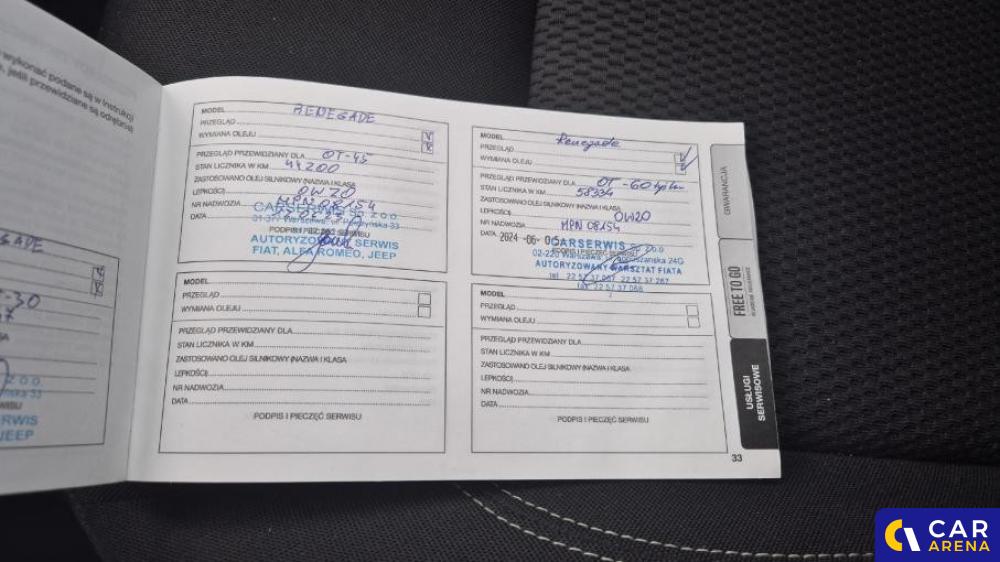 wykonać podane są w Instrukcji
jeśli przewidziane są odrębnie
MODEL RENEGADE
PRZEGLĄD
WYMIANA OLEJU
PRZEGLĄD PRZEWIDZIANY DLA OT-45
STAN LICZNIKA W KM 44200
ZASTOSOWANO OLEJ SILNIKOWY (NAZWA I KLASA
LEPKOŚCI) 0W20
NR NADWOZIA MPN08154
DATA
CARSERWIS Sp. z o.o.
PODPIS I PIECZĘĆ SERWISU
AUTORYZOWANY SERWIS
FIAT, ALFA ROMEO, JEEP
MODEL Renegade
PRZEGLĄD
WYMIANA OLEJU
PRZEGLĄD PRZEWIDZIANY DLA OT-60 tys km
STAN LICZNIKA W KM 58334
ZASTOSOWANO OLEJ SILNIKOWY (NAZWA I KLASA
LEPKOŚCI) 0W20
NR NADWOZIA MPN08154
DATA 2024-06-05
CARSERWIS Sp. z o.o.
PODPIS I PIECZĘĆ SERWISU
02-220 Warszawa
AUTORYZOWANY WARSZTAT FIATA
MODEL
PRZEGLĄD
WYMIANA OLEJU
PRZEGLĄD PRZEWIDZIANY DLA
STAN LICZNIKA W KM
ZASTOSOWANO OLEJ SILNIKOWY (NAZWA I KLASA
LEPKOŚCI)
NR NADWOZIA
DATA
PODPIS I PIECZĘĆ SERWISU
MODEL
PRZEGLĄD
WYMIANA OLEJU
PRZEGLĄD PRZEWIDZIANY DLA
STAN LICZNIKA W KM
ZASTOSOWANO OLEJ SILNIKOWY (NAZWA I KLASA
LEPKOŚCI)
NR NADWOZIA
DATA
PODPIS I PIECZĘĆ SERWISU
GWARANCJA
FREE TO GO
USŁUGI
SERWISOWE
33
CAR
ARENA